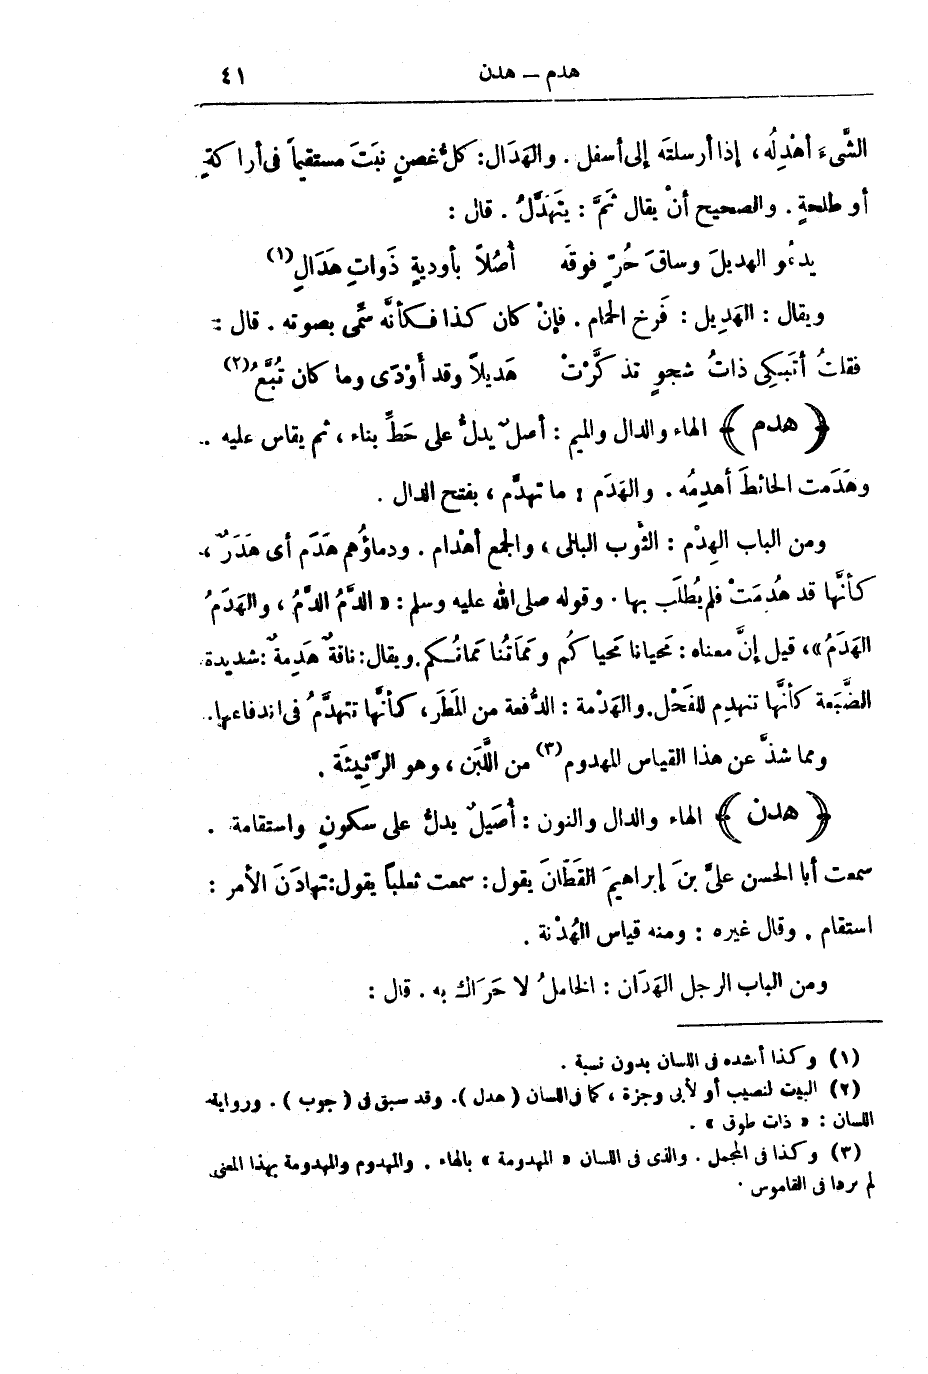 هدم — هدن ٤١
الشَّىءَ أهْدِلُه، إذا أرسلتَه إلى أسفل. والهَدَال: كلُّ غصنٍ نبَتَ مستقيماً فى أراكةٍ
أو طلحةٍ. والصحيح أنْ يقال ثَمَّ: يتَهَدَّلُ. قال:
يدعُو الهديلَ وساقَ حُرٍّ فوقَه أُصُلاً بأوديةٍ ذَواتِ هَدَالِ(١)
ويقال: الهَدِيل: فَرخ الحمام. فإنْ كان كذا فكأنَّه سمِّى بصوته. قال:
فقلتُ أتَبكِى ذاتُ شجوٍ تذكَّرتْ هَديلاً وقد أَوْدَى وما كان تُبَّعُ(٢)
﴿هدم﴾ الهاء والدال والميم: أصلٌ يدلُّ على حَطِّ بناء، ثم يقاس عليه.
وهَدَمت الحائطَ أهدِمُه. والهَدَم: ما تهدَّم، بفتح الدال.
ومن الباب الهِدْم: الثَّوب البالى، والجمع أهْدام. ودماؤُهم هَدَم أى هَدَرٌ،
كأنَّها قد هُدِمَتْ فلم يُطلَب بها. وقوله صلى الله عليه وسلم: «الدَّمُ الدَّمُ، والهَدَمُ
الهَدَمُ»، قيل إنَّ معناه: مَحيانا مَحياكُم ومَمَاتُنا مَماتُكم. ويقال: ناقةٌ هَدِمةٌ: شديدة
الضَّبَعة كأنَّها تنهدِم للفَحْل. والهَدْمة: الدُّفعة من المَطَر، كأنَّها تتهدَّمُ فى اندفاعها.
ومما شذَّ عن هذا القياس المهدوم(٣) من اللَّبَن، وهو الرَّثِيئَة.
﴿هدن﴾ الهاء والدال والنون: أُصَيلٌ يدلُّ على سكونٍ واستقامة.
سمعت أبا الحسن علىَّ بنَ إبراهيمَ القَطّانَ يقول: سمعت ثعلباً يقول: تهادَنَ الأمر:
استقام. وقال غيره: ومنه قياس الهُدْنة.
ومن الباب الرجل الهَدَان: الخاملُ لا حَرَاك به. قال:
(١) وكذا أنشده فى اللسان بدون نسبة.
(٢) البيت لنصيب أو لأبى وجزة، كما فى اللسان (هدل). وقد سبق فى (جوب). ورواية
اللسان: «ذات طوق».
(٣) وكذا فى المجمل. والذى فى اللسان «المهدومة» بالهاء. والمهدوم والمهدومة بهذا المعنى
لم يردا فى القاموس.